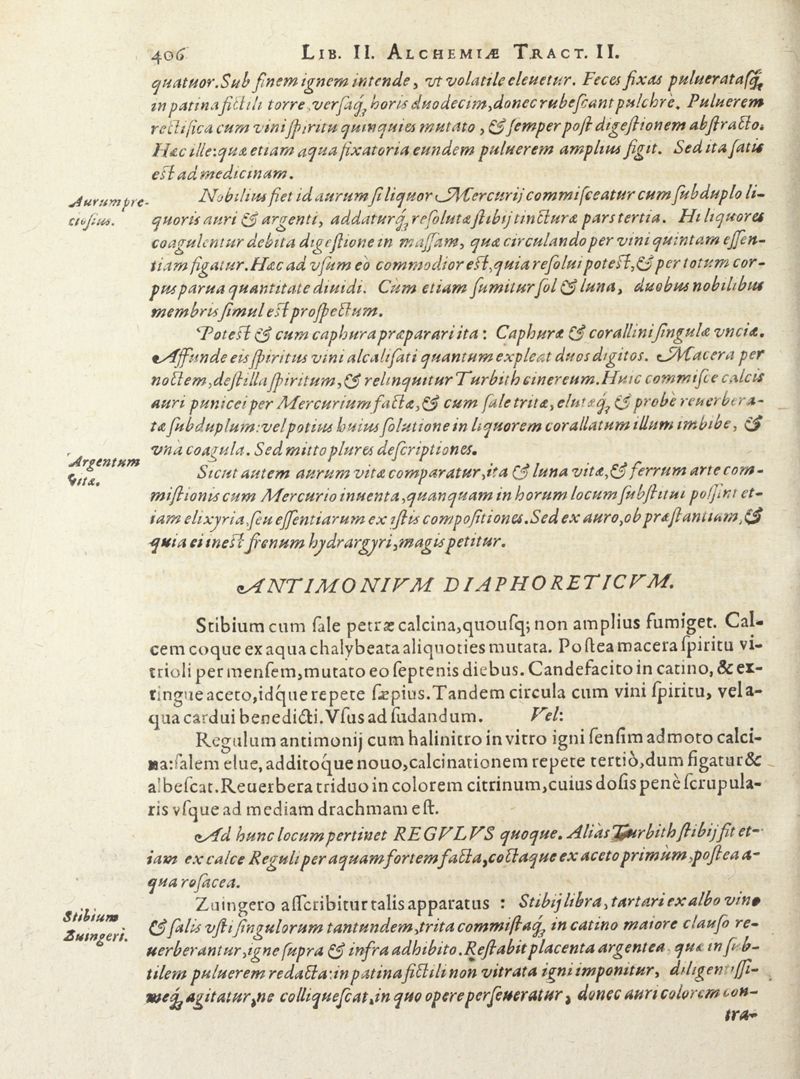 406 LIB. II. ALCHEMIÆ TRACT. II.
quatuor. Sub finem ignem intende, vt volatile eleuetur. Feces fixas puluerataſq;
in patina fictili torre, verſaq; horis duodecim, donec rubeſcant pulchre. Puluerem
rectifica cum vini ſpiritu quinquies mutato, & ſemper poſt digeſtionem abſtracto.
Hæc ille: quæ etiam aqua fixatoria eundem puluerem amplius figit. Sed ita ſatis
eſt ad medicinam.
Aurum pre-
cioſius.
Nobilius fiet id aurum ſi liquor Mercurij commiſceatur cum ſubduplo li-
quoris auri & argenti, addaturq; reſolutæ ſtibij tincturæ pars tertia. Hi liquores
coagulentur debita digeſtione in maſſam, quæ circulando per vini quintam eſſen-
tiam figatur. Hæc ad vſum eò commodior eſt, quia reſolui poteſt, & per totum cor-
pus parua quantitate diuidi. Cùm etiam ſumitur ſol & luna, duobus nobilibus
membris ſimul eſt proſpectum.
Poteſt & cum caphura præparari ita: Caphuræ & corallini ſingulæ vnciæ.
Affunde eis ſpiritus vini alcaliſati quantum expleat duos digitos. Macera per
noctem, deſtilla ſpiritum, & relinquitur Turbith cinereum. Huic commiſce calcis
auri punicei per Mercurium factæ, & cum ſale tritæ, elutæq; & probè reuerbera-
tæ ſubduplum: vel potius huius ſolutione in liquorem corallatum illum imbibe, &
vnà coagula. Sed mitto plures deſcriptiones.
Argentum
vitæ.
Sicut autem aurum vitæ comparatur, ita & luna vitæ, & ferrum arte com-
miſtionis cum Mercurio inuenta, quanquam in horum locum ſubſtitui poſſint et-
iam elixyria, ſeu eſſentiarum ex iſtis compoſitiones. Sed ex auro, ob præſtantiam, &
quia ei ineſt frenum hydrargyri, magis petitur.
ANTIMONIVM DIAPHORETICVM.
Stibium cum ſale petræ calcina, quouſq; non amplius fumiget. Cal-
cem coque ex aqua chalybeata aliquoties mutata. Poſtea macera ſpiritu vi-
trioli per menſem, mutato eo ſeptenis diebus. Candefacito in catino, & ex-
tingue aceto, idque repete ſæpius. Tandem circula cum vini ſpiritu, vel a-
qua cardui benedicti. Vſus ad ſudandum. Vel:
Regulum antimonij cum halinitro in vitro igni ſenſim admoto calci-
na: ſalem elue, additoque nouo, calcinationem repete tertiò, dum figatur &
albeſcat. Reuerbera triduo in colorem citrinum, cuius doſis penè ſcrupula-
ris vſque ad mediam drachmam eſt.
Ad hunc locum pertinet REGVLVS quoque. Aliàs Turbith ſtibij fit et-
iam ex calce Reguli per aquam fortem facta, coctaque ex aceto primùm, poſtea a-
qua roſacea.
Stibium
Zuingeri.
Zuingero aſſcribitur talis apparatus : Stibij libra, tartari ex albo vino
& ſalis vſti ſingulorum tantundem, trita commiſtaq; in catino maiore clauſo re-
uerberantur, igne ſupra & infra adhibito. Reſtabit placenta argentea, quæ in ſub-
tilem puluerem redacta: in patina fictili non vitrata igni imponitur, diligentiſſi-
meq; agitatur, ne colliqueſcat, in quo opere perſeueratur, donec auri colorem con-
tra-